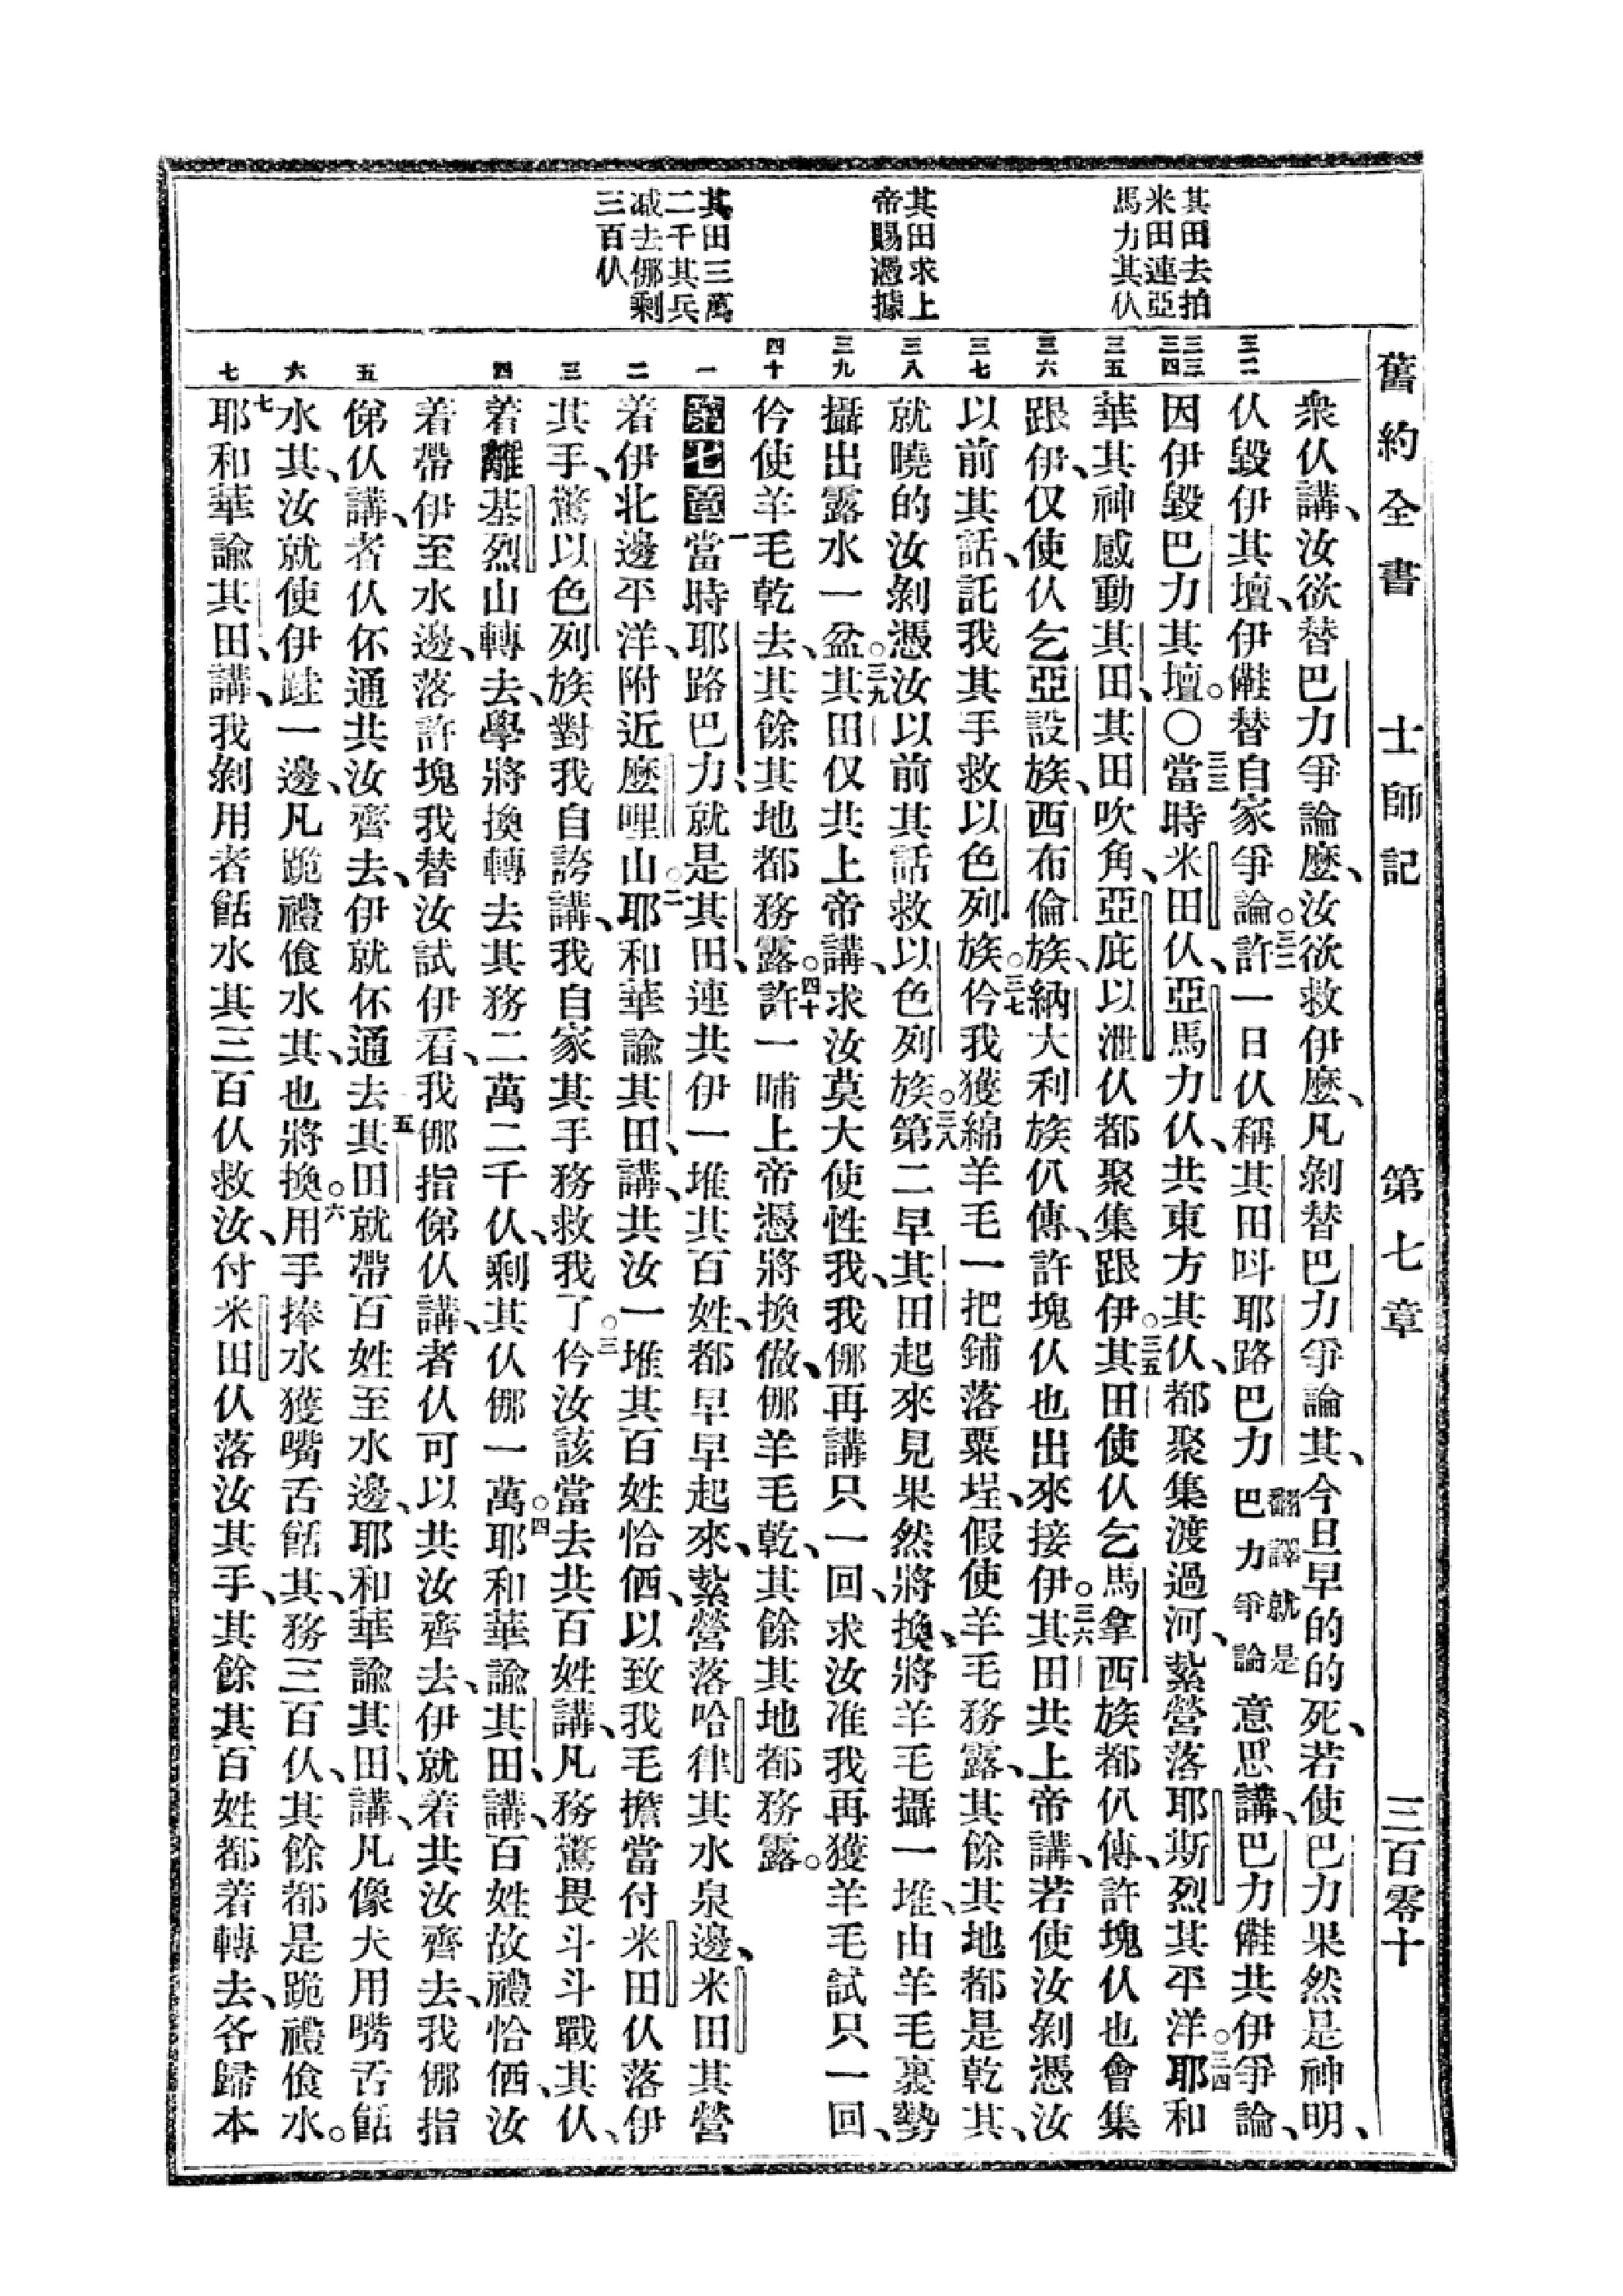 舊約全書 士師記 第七章 三百零十
其田去拍
米田連亞
馬力其仈
其田求上
帝賜憑據
其田三萬
二千其兵
減去㑚剩
三百仈
三二
三三
三四
三五
三六
三七
三八
三九
四十
一
二
三
四
五
六
七
衆仈講、汝欲替巴力爭論麼、汝欲救伊麼、凡剝替巴力爭論其、今旦早的的死、若使巴力果然是神明、
仈毀伊其壇、伊㒁替自家爭論。三二許一日仈稱其田叫耶路巴力翻譯就是巴力爭論意思講、巴力㒁共伊爭論、
因伊毀巴力其壇。〇三三當時米田仈、亞馬力仈、共東方其仈、都聚集渡過河、紮營落耶斯烈其平洋。三四耶和
華其神感動其田、其田吹角、亞庇以泄仈都聚集跟伊。三五其田使仈乞馬拿西族都仈傳、許塊仈也會集
跟伊、仅使仈乞亞設族、西布倫族、納大利族仈傳、許塊仈也出來接伊。三六其田共上帝講、若使汝剝憑汝
以前其話、託我其手救以色列族。三七仱我獲綿羊毛一把鋪落粟埕、假使羊毛務露、其餘其地都是乾其、
就曉的汝剝憑汝以前其話救以色列族。三八第二早其田起來見果然將換、將羊毛攝一堆、由羊毛裏勢
攝出露水一盆。三九其田仅共上帝講、求汝莫大使性我、我㑚再講只一回、求汝准我再獲羊毛試只一回、
仱使羊毛乾去、其餘其地都務露。四十許一晡上帝憑將換做、㑚羊毛乾、其餘其地都務露。
第七章一當時耶路巴力、就是其田、連共伊一堆其百姓、都早早起來、紮營落哈律其水泉邊、米田其營
着伊北邊平洋、附近麼哩山。二耶和華諭其田、講、共汝一堆其百姓恰𠍲、以致我毛擔當付米田仈落伊
其手、驚以色列族對我自誇講、我自家其手務救我。三了仱汝該當去共百姓講、凡務驚畏斗斗戰其仈、
着離基烈山轉去、學將換轉去其務二萬二千仈、剩其仈㑚一萬。四耶和華諭其田、講、百姓故禮恰𠍲、汝
着帶伊至水邊、落許塊我替汝試伊看、我㑚指俤仈講、者仈可以共汝齊去、伊就着共汝齊去、我㑚指
俤仈講、者仈伓通共汝齊去、伊就伓通去。五其田就帶百姓至水邊、耶和華諭其田、講、凡像犬用嘴舌餂
水其、汝就使伊跬一邊、凡跪禮飡水其、也將換。六用手捧水獲嘴舌餂其、務三百仈、其餘都是跪禮飡水。
七耶和華諭其田、講、我剝用者餂水其三百仈救汝、付米田仈落汝其手、其餘其百姓都着轉去、各歸本